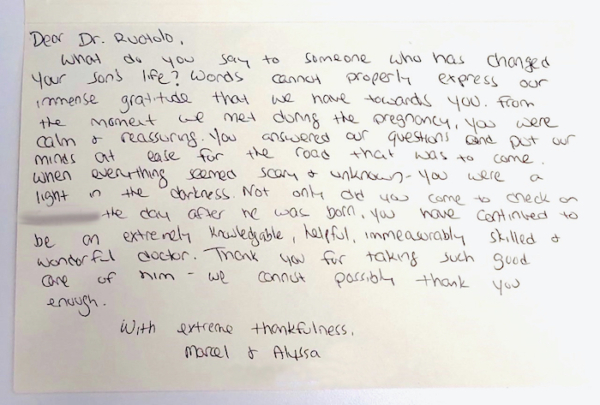 Dear Dr. Ruotolo,
What do you say to someone who has changed
your son's life? Words cannot properly express our
immense gratitude that we have towards you. From
the moment we met during the pregnancy, you were
calm & reassuring. You answered our questions and put our
minds at ease for the road that was to come.
When everything seemed scary & unknown - you were a
light in the darkness. Not only did you come to check on
the day after he was born, you have continued to
be an extremely knowledgable, helpful, immeasurably skilled &
wonderful doctor. Thank you for taking such good
care of him - we cannot possibly thank you
enough.
With extreme thankfulness,
Marcel & Alyssa